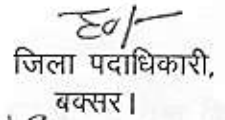 ह०/-
जिला पदाधिकारी,
बक्सर।